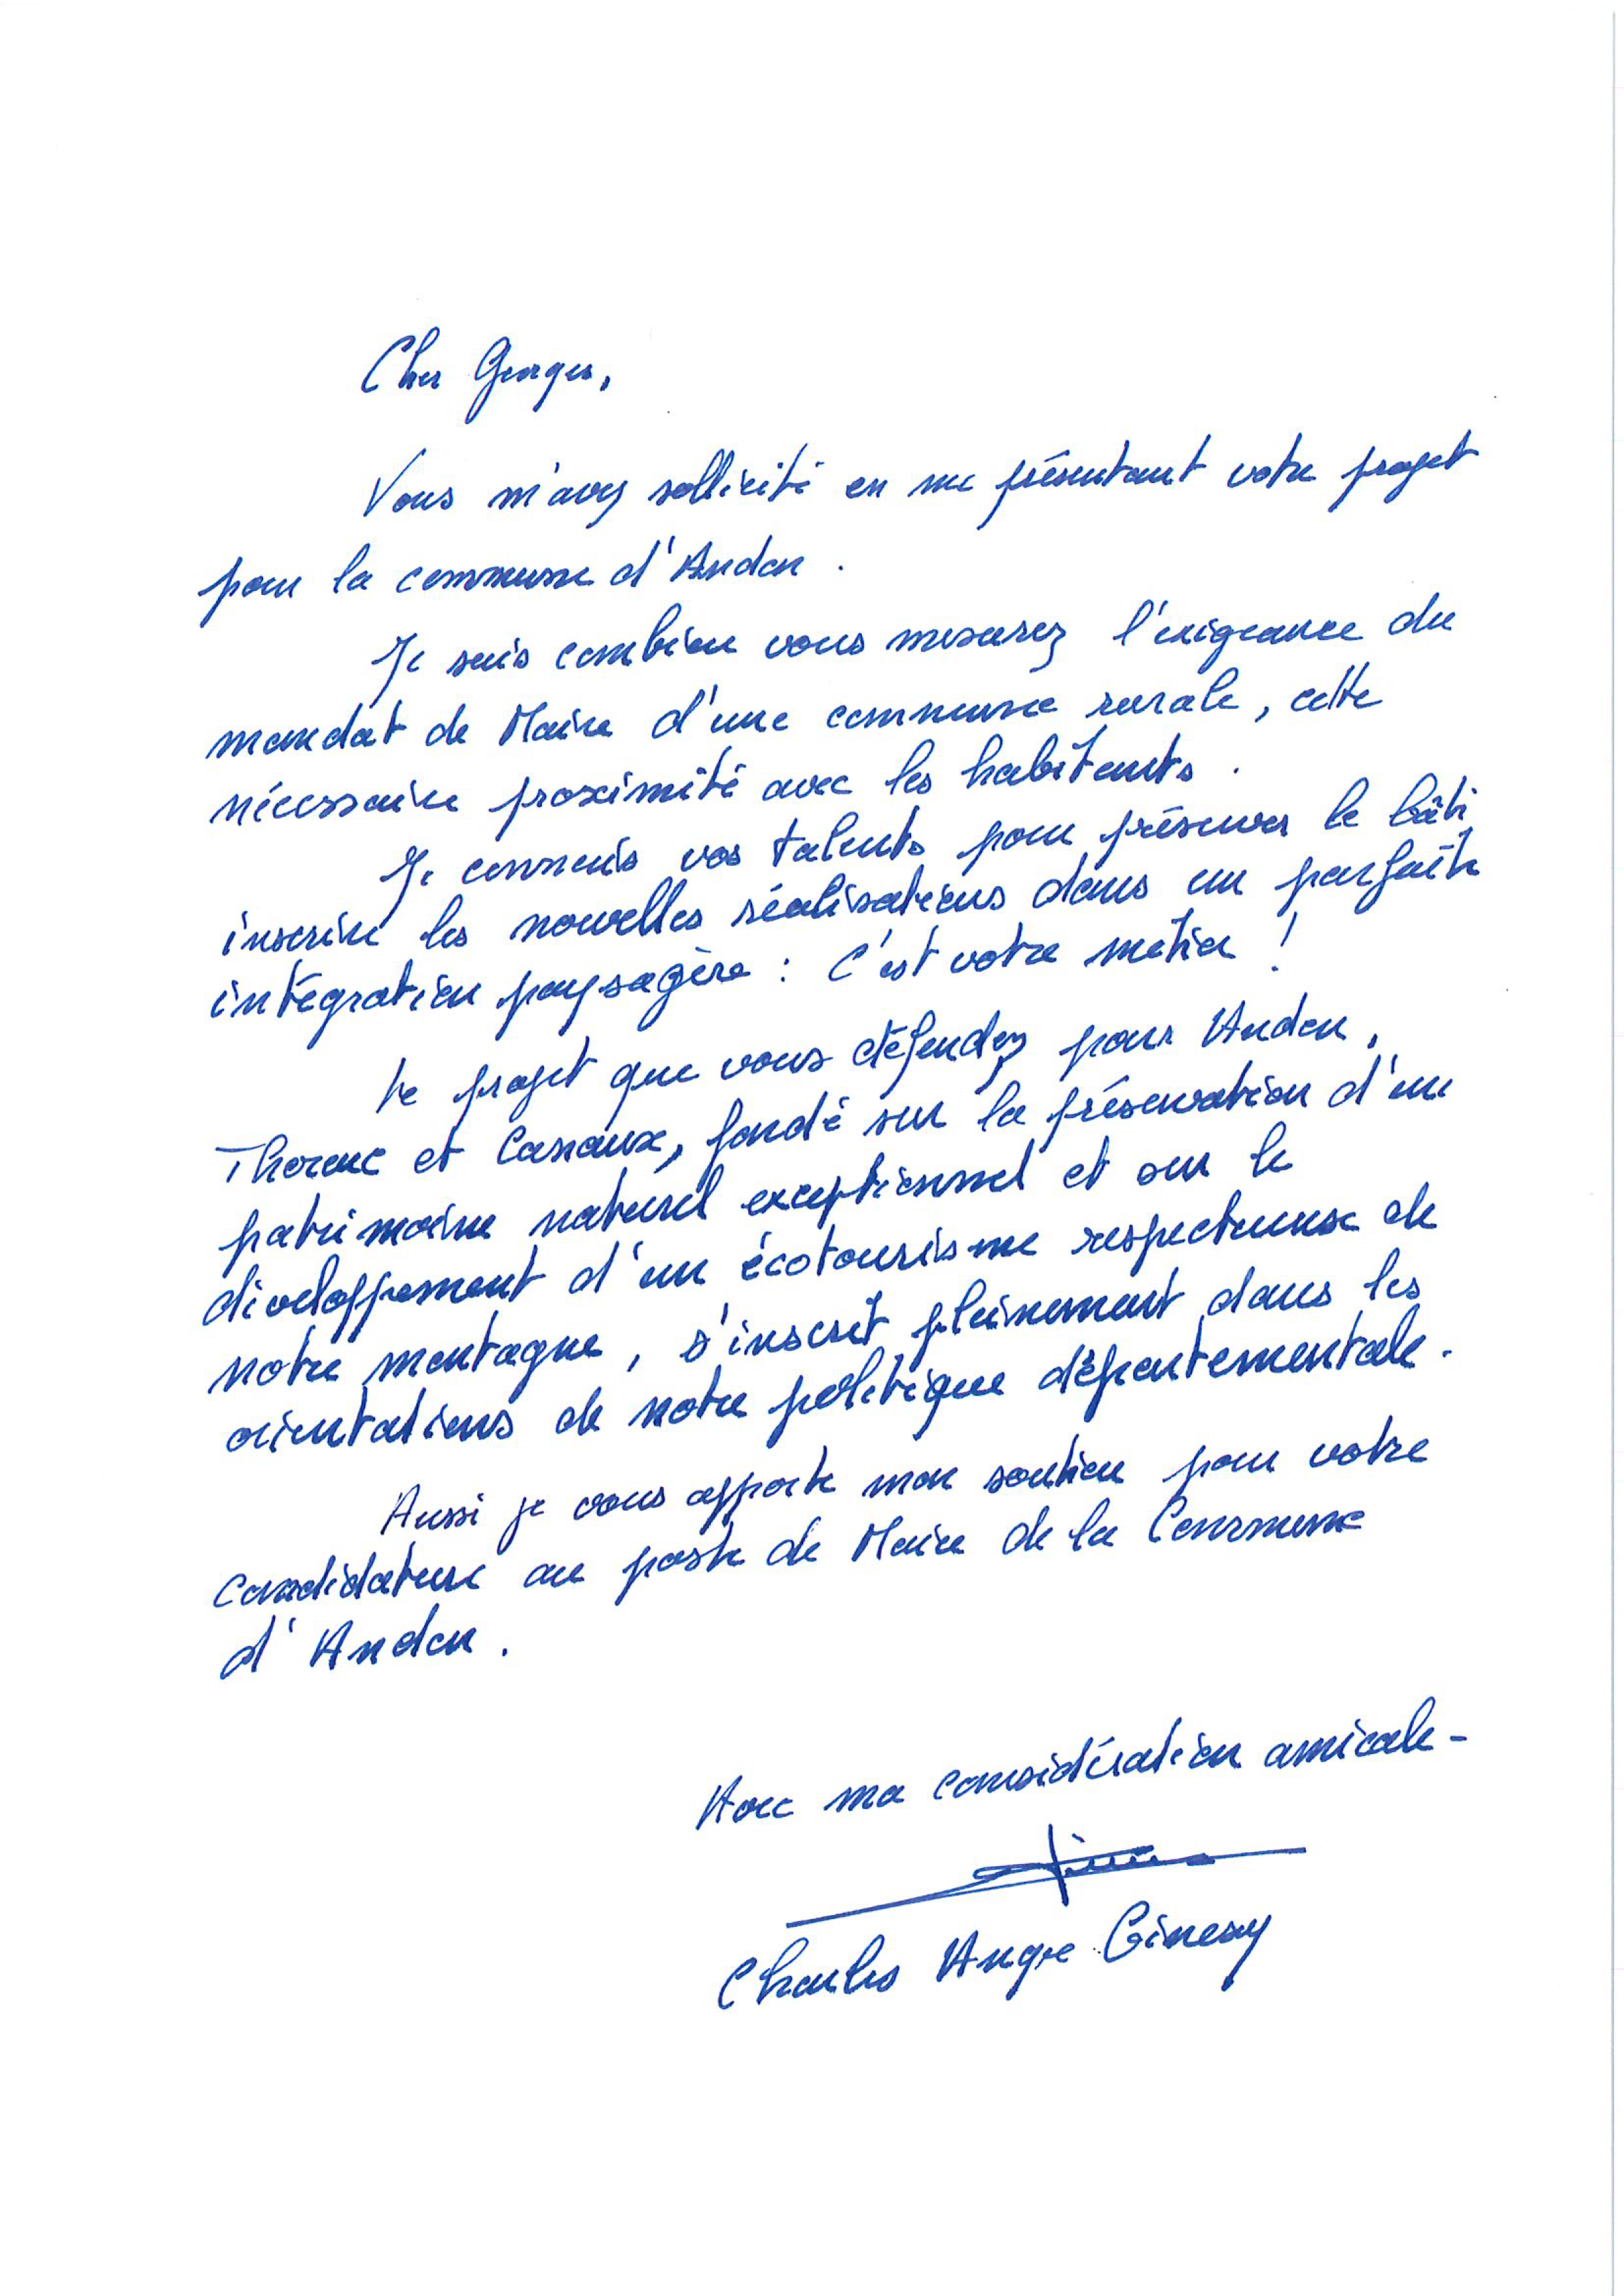 Cher Georges,
Vous m'avez sollicité en me présentant votre projet
pour la commune d'Andon.
Je sais combien vous mesurez l'exigeance du
mandat de Maire d'une commune rurale, cette
nécessaire proximité avec les habitants.
Je connais vos talents pour préserver le bâti
inscrire les nouvelles réalisations dans un parfaite
intégration paysagère : C'est votre métier !
Le projet que vous défendez pour Andon,
Thorenc et Canaux, fondé sur la préservation d'un
patrimoine naturel exceptionnel et sur le
développement d'un écotourisme respectueux de
notre montagne, s'inscrit pleinement dans les
orientations de notre politique départementale.
Aussi je vous apporte mon soutien pour votre
candidature au poste de Maire de la Commune
d'Andon.
Avec ma considération amicale -
Charles Ange Ginesy